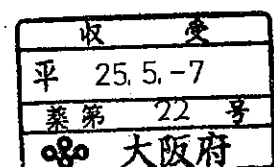 収受
平 25.5.-7
薬第 22 号
大阪府